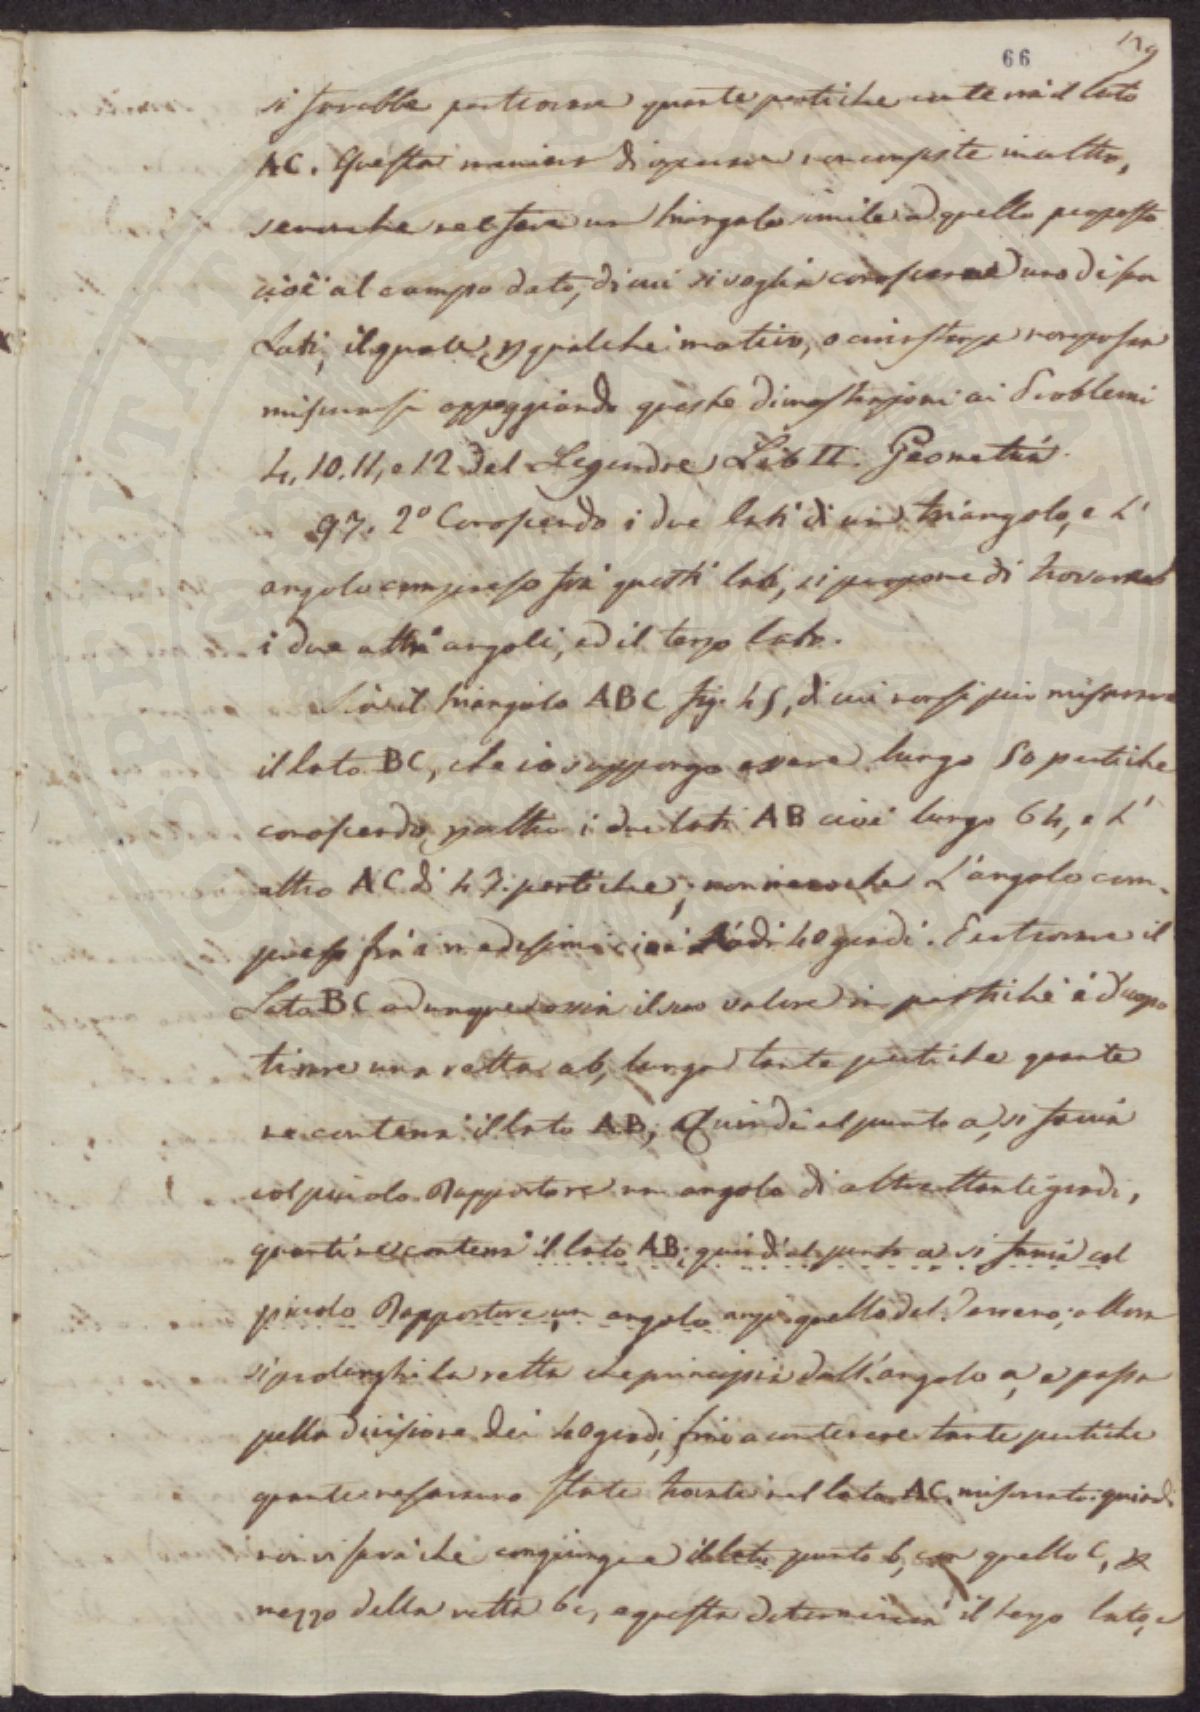 66
129
si farebbe per trovare quante pertiche contenga il lato
AC. Questa maniera di operare non consiste in altro,
senonche nel fare un triangolo simile a quello proposto
cioè al campo dato, di cui si voglia conoscere uno di suoi
Lati, il quale, p qualche motivo, o circostanza non possa
misurarsi appoggiando queste dimostrazioni ai Problemi
4, 10. 11, e 12 del Legendre Lib II. Geometria.
97. 2° Conoscendo i due lati di un triangolo, e L'
angolo compreso frà questi lati, si propone di trovarne
i due altri angoli, ed il terzo lato.
Sia il triangolo ABC fig. 45, di cui non si può misurare
il lato BC, che io suppongo essere lungo 50 pertiche
conoscendo p altro i due lati AB cioè lungo 64, e L'
altro AC di 47. pertiche, nonmenoche L'angolo com-
preso frà i medesimi cioè di 40 gradi. Per trovare il
Lato BC adunque ossia il suo valore in pertiche è d'uopo
tirare una retta ab, lunga tante pertiche quante
ne contena il lato AB; Quindi al punto a, si faccia
col piccolo Rapportore un angolo di altrettanti gradi,
quanti ne contena il lato AB; quindi al punto a si faccia col
piccolo Rapportore, un angolo anzi quello del Terreno; allora
si prolunghi la retta che principia dall'angolo a, e passa
pella divisione dei 40 gradi, fino a contenere tante pertiche
quante ne saranno state trovate nel lato AC misurato: quindi
non vi sarà che congiungere il lato punto b, con quello c, p
mezzo della retta bc, e questa determinerà il terzo lato, e